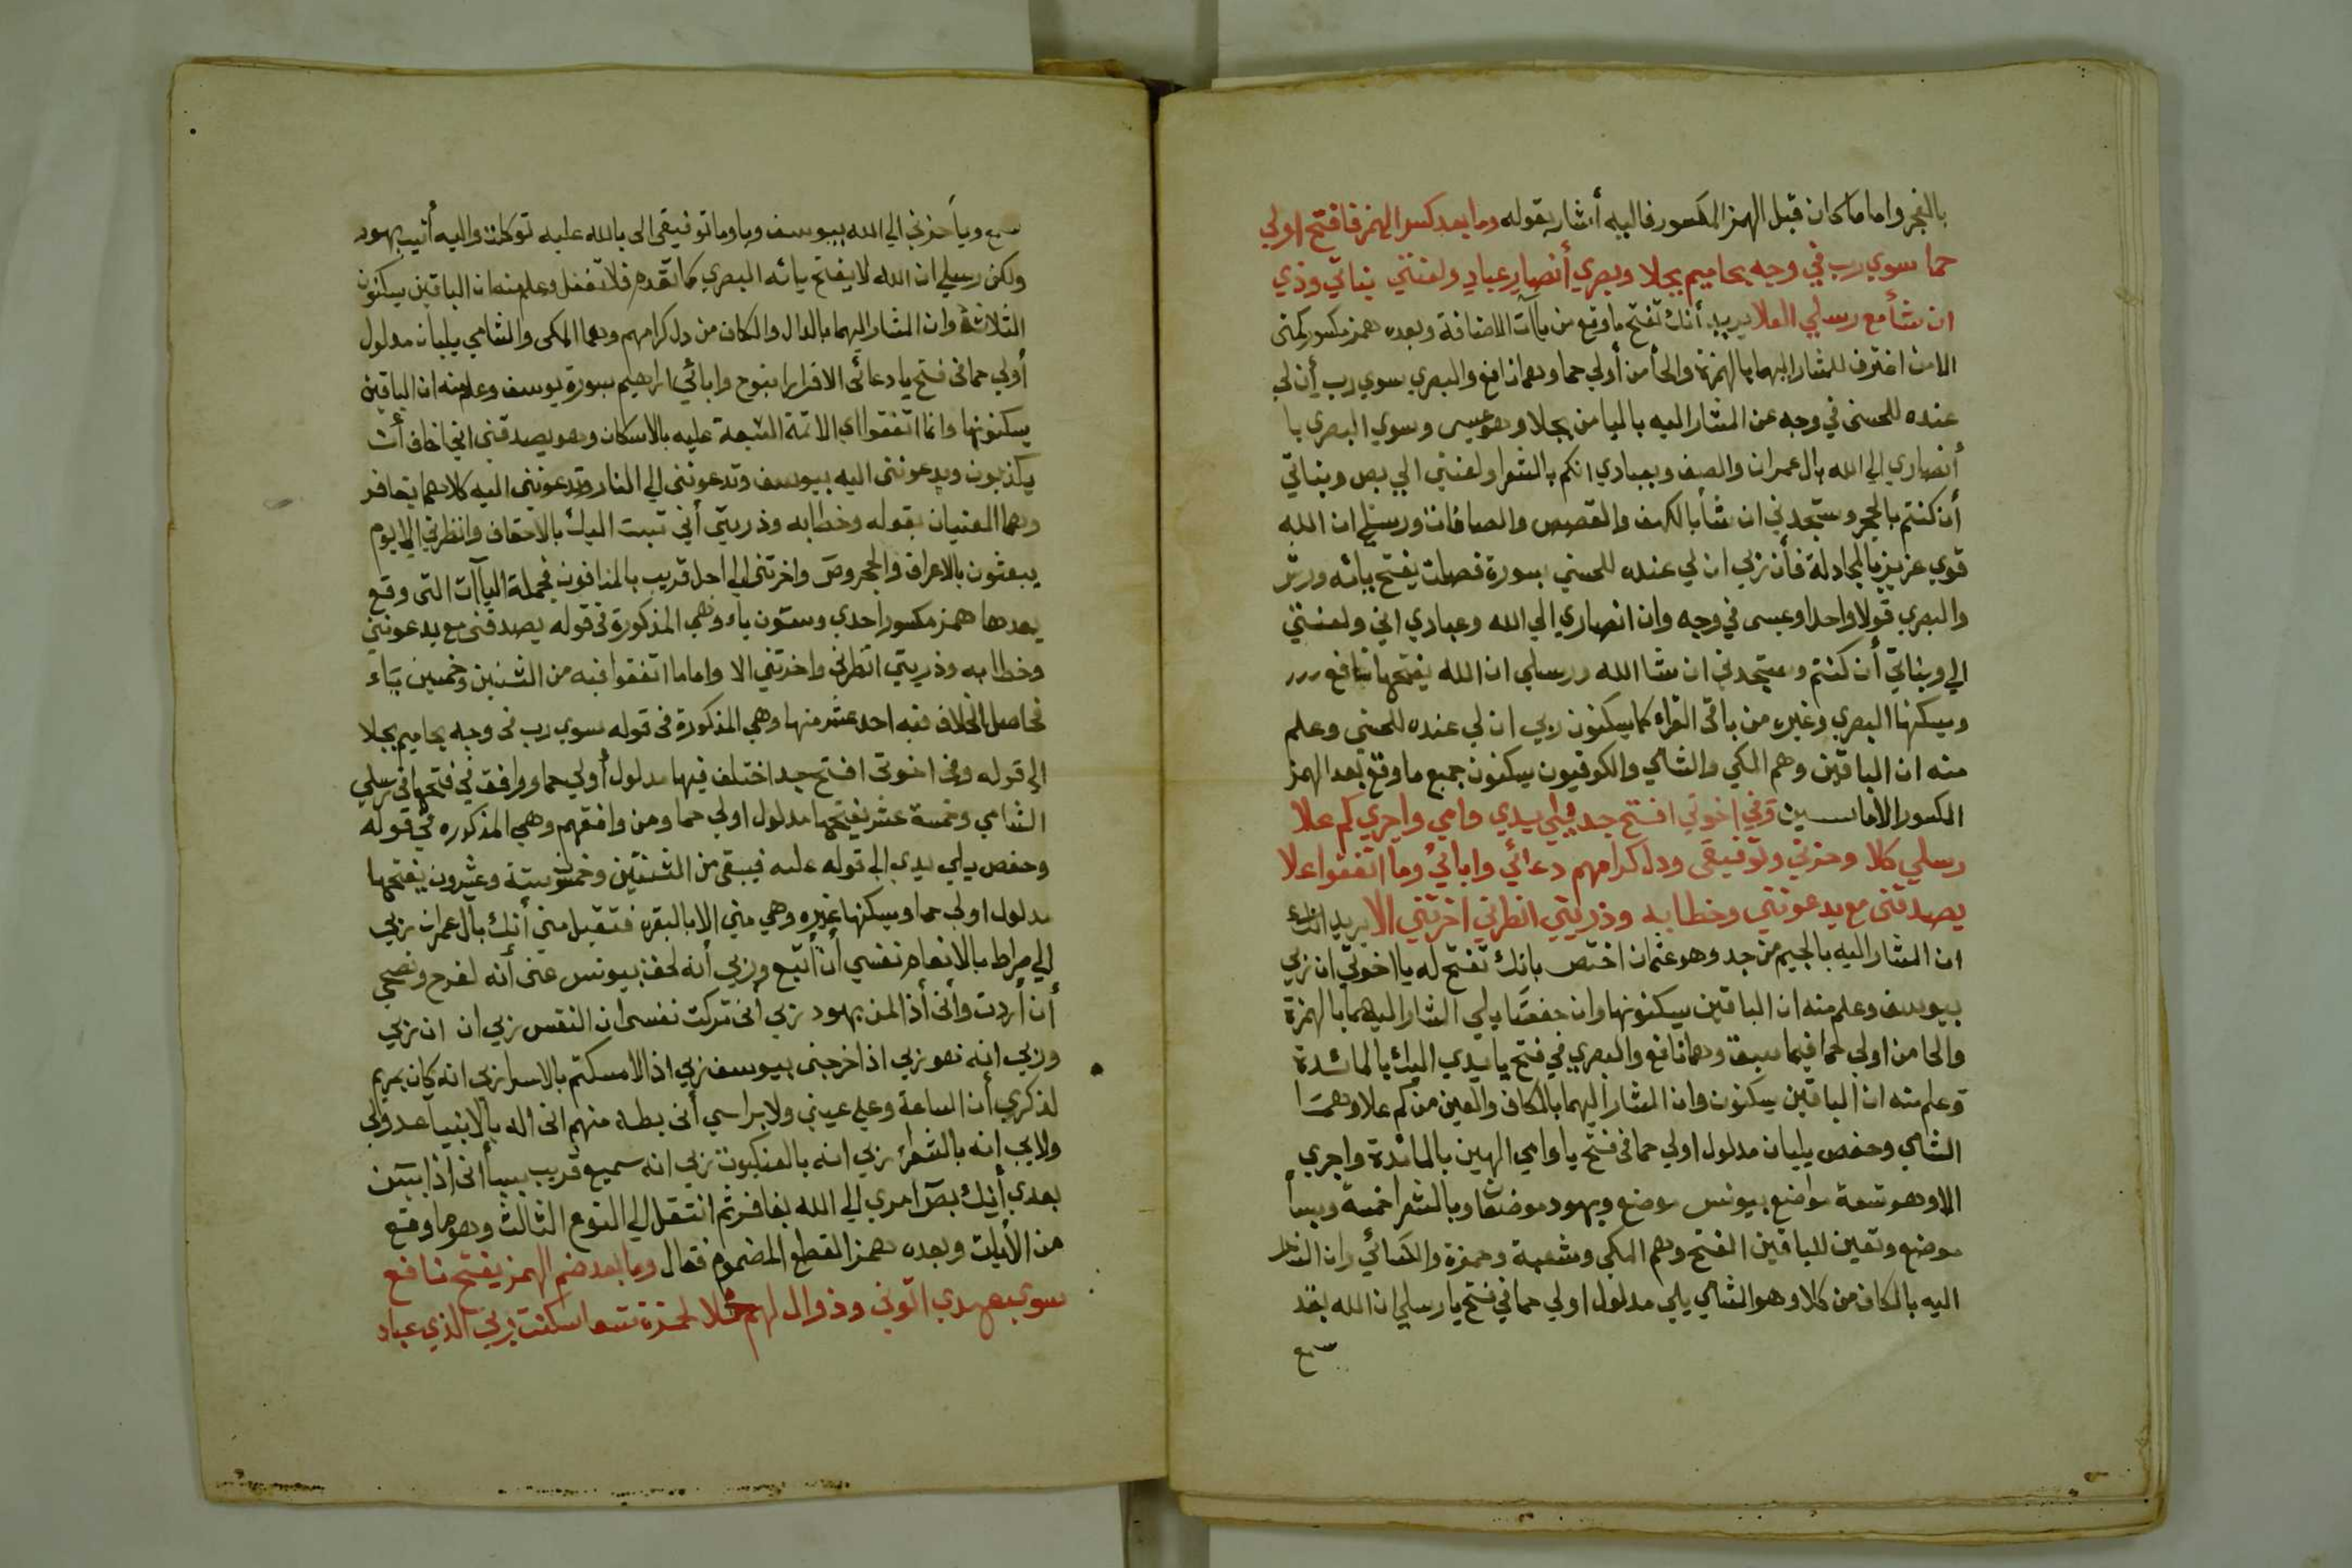 بالفجر واما ما كان قبل الهمز المكسور فاليه أشار بقوله وما بعد كسر الهمز فافتح اولي
حما سوي رب في وجه بحاميم بجلا وبصري أنصار عبادي ولعنتي بناتي وذي
ان شأ مع رسلي العلا يريد أنك تفتح ما وقع من ياآت الاضافة وبعده همز مكسور كمني
الا من اغترف للمشار اليهما بالهمزة والحأ من أولي حما وهما نافع والبصري سوي رب أن لي
عنده للحسنى في وجه عن المشار اليه باليا من بجلا وهو عيسى وسوي البصري يا
أنصاري الي الله بال عمران والصف وبعبادي انكم بالشعرا ولعنتي الي بص وبناتي
أن كنتم بالحجر وستجدني ان شأ بالكهف والقصص والصافات ورسلي ان الله
قوي عزيز بالمجادلة فأن زبي ان لي عنده للحسني بسورة فصلت يفتح يائه ورش
والبصري قولا واحدا وعيسى في وجه وان انصاري الي الله وعبادي اني ولعنتي
الي وبناتي أن كنتم وستجدني ان شا الله ورسلي ان الله يفتحها نافع
ويسكنها البصري وغيره من باقي القراء كما يسكنون ربي ان لي عنده للحسني وعلم
منه ان الباقين وهم المكي والشامي والكوفيون يسكنون جميع ما وقع بعد الهمز
المكسور الا ما سيبين وفي اخوتي افتح جد يدي وامي واجري كم علا
رسلي كلا وحزني وتوفيقي ودل كرامهم دعائي واباتي وما اتفقوا علا
يصدقني مع يدعونني وخطابه وذريتي انظرني اخرتني الا يريد انك
ان المشار اليه بالجيم من جد وهو عثمان اختص بانك تفتح له يا اخوتي ان زبي
بيوسف وعلم منه ان الباقين يسكنونها وان حفصا يلي المشار اليهما بالهمزة
والحا من اولي حما فيما سبق وهما نافع والبصري في فتح يا يدي اليك بالمائدة
وعلم منه ان الباقين يسكنون وان المشار اليهما بالكاف والعين من كم علا وهما
الشامي وحفص يليان مدلول اولي حما في فتح يا وامي الهين بالمائدة واجري
الا وهو تسعة مواضع بيونس موضع وبهود موضعان وبالشعرا خمسة وبسبأ
موضع وتعين للباقين الفتح وهم المكي وشعبة وحمزة والكسائي وان المشار
اليه بالكاف من كلا وهو الشامي يلي مدلول اولي حما في فتح يا رسلي ان الله بقد
سمع
سمع ويا حزني الي الله بيوسف ويا وما توفيقي الى بالله عليه توكلت واليه أنيب بهود
ولكن رسلي ان الله لا يفتح يائه البصري كما تقدم فلا تغفل وعلم منه ان الباقين يسكنون
الثلاثة وان المشار اليهما بالدال والكاف من دل كرامهم وهما المكى والشامي يليان مدلول
أولي حما في فتح يا دعائى الا فرارا بنوح وابائي ابراهيم بسورة يوسف وعلم منه ان الباقين
يسكنونها وانما اتفقوا اي الائمة السبعة عليه بالاسكان وهو يصدقني اني اخاف أن
يكذبون ويدعونني اليه بيوسف وتدعونني الي النار وتدعونني اليه كلاهما بغافر
وهما المعنيان بقوله وخطابه وذريتي أني تبت اليك بالاحقاف وانظرني الي يوم
يبعثون بالاعراف والحجر وص واخرتني الي اجل قريب بالمنافقون فجملة الياآت التي وقع
بعدها همز مكسور احدي وستون ياء وهي المذكورة في قوله يصدقني مع يدعونني
وخطابه وذريتي انظرني واخرتني الا واما ما اتفقوا فيه من الثنتين وخمسين ياء
فحاصل الخلاف فيه احد عشر منها وهي المذكورة في قوله سوي رب في وجه بحاميم بجلا
الي قوله وفي اخوتي افتح جد اختلف فيها مدلول أولي حما ووافق في فتحها في رسلي
الشامي وخمسة عشر يفتحها مدلول اولي حما ومن وافقهم وهي المذكوره في قوله
وحفص يلي يدي الي قوله عليه فيبقي من الثنتين وخمسون ستة وعشرون يفتحها
مدلول اولي حما ويسكنها غيره وهي مني الا بالبقرة فتقبل مني أنك بال عمران زبي
الي صراط بالانعام نفسي أن أتبع وربي أنه لحق بيونس عني أنه لفرح ونصحي
أن أردت وأني أذا لمن بهود زبي اني تركت نفسي ان النفس زبي ان ان زبي
وربي انه نعو زبي اذ اخرجني بيوسف زبي اذا لامسكتم بالاسرا زبي انه كان بمريم
لذكري أن الساعة وعلي عيني ولا براسي أني بطه منهم اني اله بالانبيا عدولي
ولابي انه بالشعرا زبي انه بالعنكبوت زبي انه سميع قريب بسبأ اني اذا بيس
بعدي أنك بص امري الي الله بغافر ثم انتقل الي النوع الثالث وهو ما وقع
من الأيات وبعده همز القطع المضموم فقال وما بعد ضم الهمز يفتح نافع
سوي بعهدي اتوني وذوال لهم لحمزة تسعا سكنت زبي الذي عباد